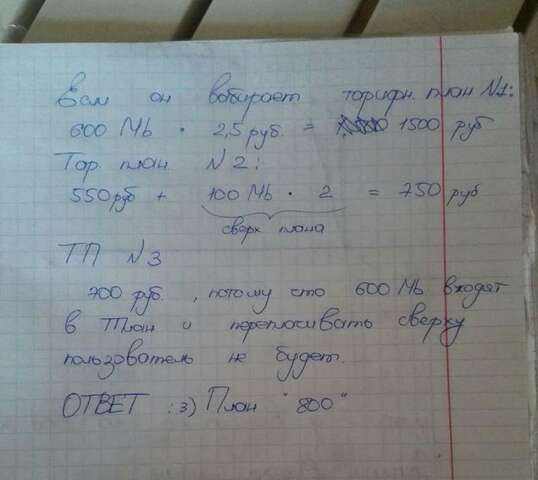 Если он вобирает торифн. план №1:
600 Mb · 2,5 руб. = 1500 руб
Тор. план. №2:
550 руб + 100 Mb · 2 = 750 руб
сверх плана
ТП №3
700 руб., потому что 600 Mb входят
в Тплан и переплочивать сверху
пользователь не будет.
ОТВЕТ : 3) План "800"